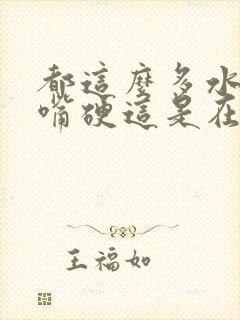 都這麼多水
嘴硬這是在
王福如